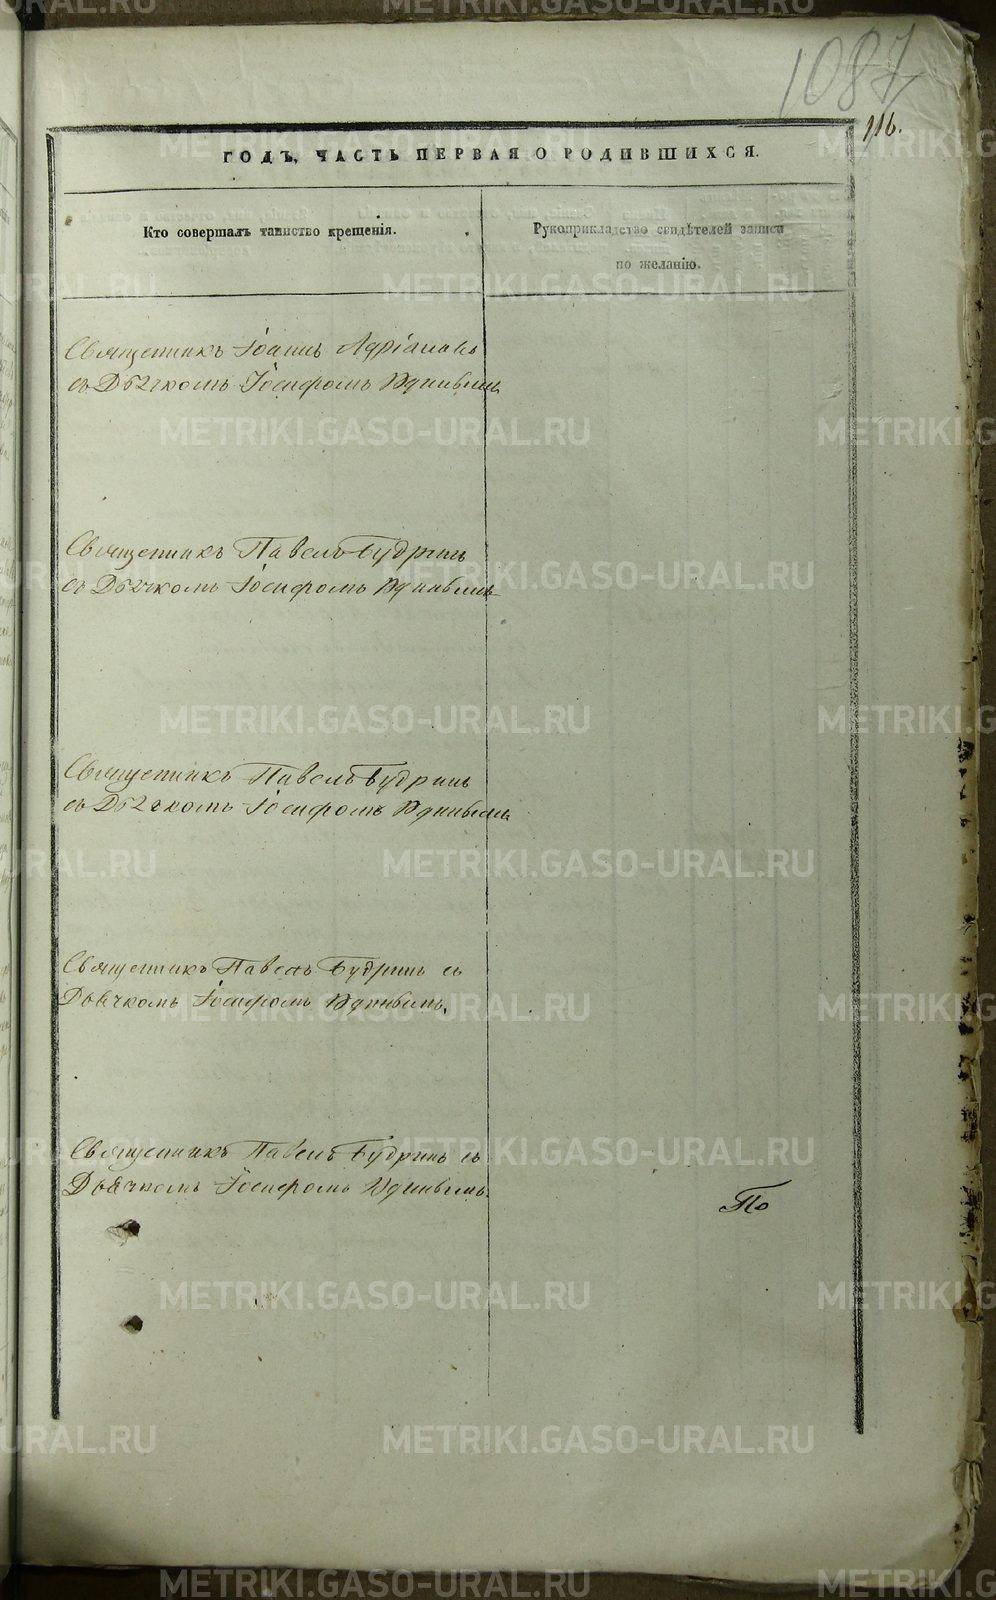 1087
116.
ГОДЪ, ЧАСТЬ ПЕРВАЯ О РОДИВШИХСЯ.
Кто совершалъ таинство крещенія.
Рукоприкладство свидѣтелей записи
по желанію.
Священникъ Іоаннъ Адріановъ
съ Дьячкомъ Іосифомъ
Священникъ Павелъ Будринъ
съ Дьячкомъ Іосифомъ
Священникъ Павелъ Будринъ
съ Дьячкомъ Іосифомъ
Священникъ Павелъ Будринъ съ
Дьячкомъ Іосифомъ
Священникъ Павелъ Будринъ съ
Дьячкомъ Іосифомъ
По
METRIKI.GASO-URAL.RU